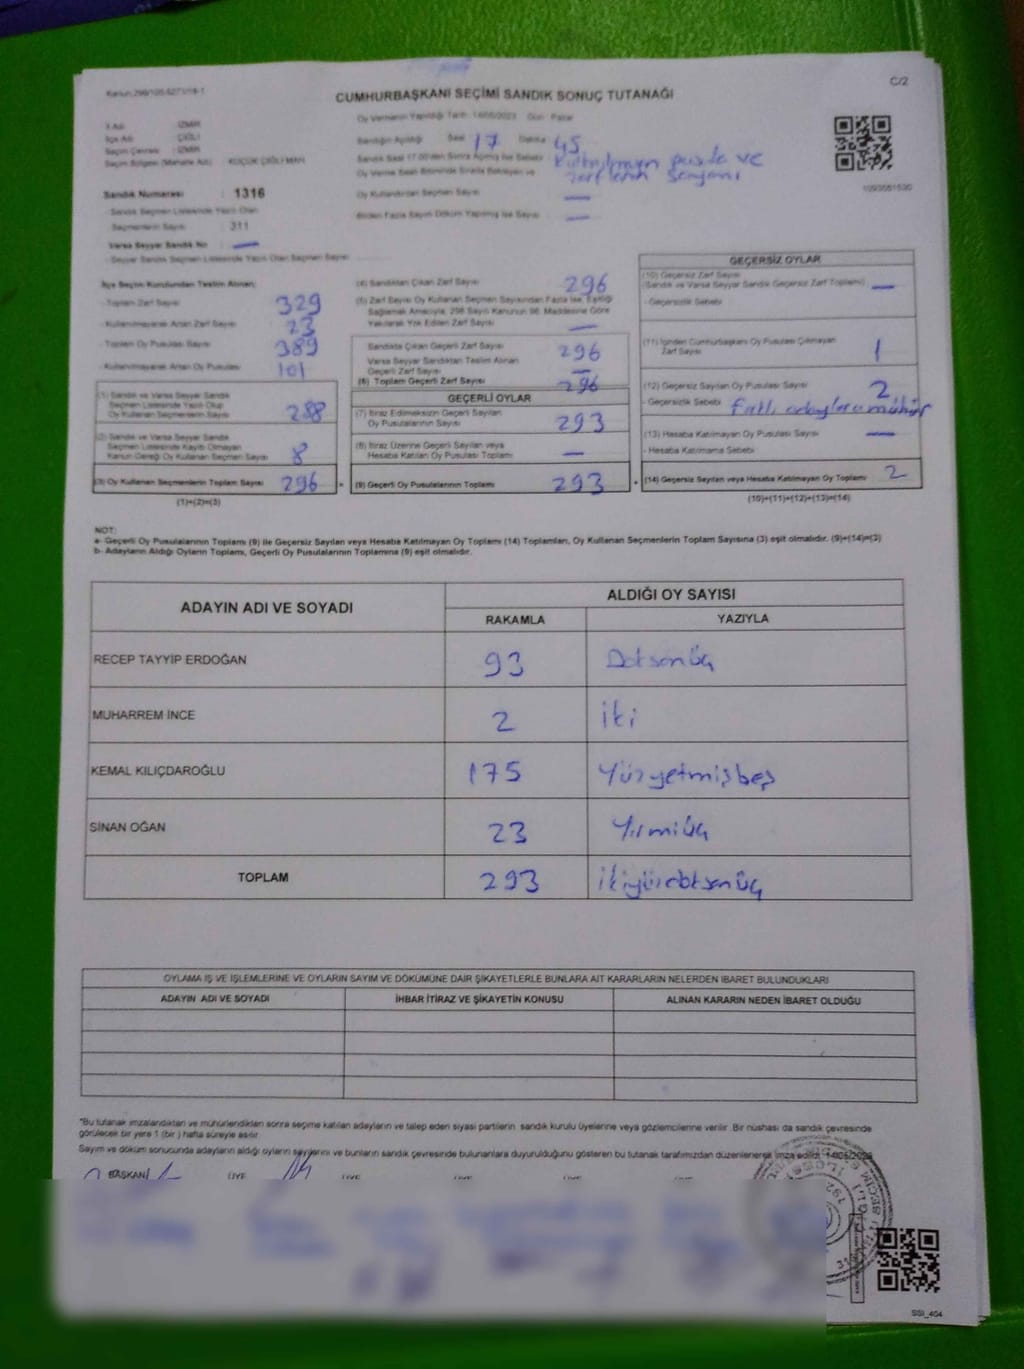 Kanun:298/105-6271/19-1
C/2
CUMHURBAŞKANI SEÇİMİ SANDIK SONUÇ TUTANAĞI
İl Adı : İZMİR
İlçe Adı : ÇİĞLİ
Seçim Çevresi : İZMİR
Seçim Bölgesi (Mahalle Adı) KÜÇÜK ÇİĞLİ MAH.
Sandık Numarası : 1316
- Sandık Seçmen Listesinde Yazılı Olan
Seçmenlerin Sayısı : 311
Varsa Seyyar Sandık No : —
- Seyyar Sandık Seçmen Listesinde Yazılı Olan Seçmen Sayısı
Oy Vermenin Yapıldığı Tarih : 14/05/2023 Gün : Pazar
Sandığın Açıldığı Saat 17 Dakika 45
Sandık Saat 17.00'den Sonra Açılmış İse Sebebi Kullanılmayan pusula ve
Oy Verme Saati Bitiminde Sırada Bekleyen ve zarfların sayımı
Oy Kullandırılan Seçmen Sayısı —
Birden Fazla Sayım Döküm Yapılmış İse Sayısı —
1093551530
İlçe Seçim Kurulundan Teslim Alınan;
- Toplam Zarf Sayısı 329
- Kullanılmayarak Artan Zarf Sayısı 23
- Toplam Oy Pusulası Sayısı 389
- Kullanılmayarak Artan Oy Pusulası 101
(1) Sandık ve Varsa Seyyar Sandık
Seçmen Listesinde Yazılı Olup
Oy Kullanan Seçmenlerin Sayısı 288
(2) Sandık ve Varsa Seyyar Sandık
Seçmen Listesinde Kayıtlı Olmayan
Kanun Gereği Oy Kullanan Seçmen Sayısı 8
(3) Oy Kullanan Seçmenlerin Toplam Sayısı 296
(1)+(2)=(3)
(4) Sandıktan Çıkan Zarf Sayısı 296
(5) Zarf Sayısı Oy Kullanan Seçmen Sayısından Fazla İse, Eşitliği
Sağlamak Amacıyla, 298 Sayılı Kanunun 98. Maddesine Göre
Yakılarak Yok Edilen Zarf Sayısı —
Sandıkta Çıkan Geçerli Zarf Sayısı 296
Varsa Seyyar Sandıktan Teslim Alınan
Geçerli Zarf Sayısı —
(6) Toplam Geçerli Zarf Sayısı 296
GEÇERLİ OYLAR
(7) İtiraz Edilmeksizin Geçerli Sayılan
Oy Pusulalarının Sayısı 293
(8) İtiraz Üzerine Geçerli Sayılan veya
Hesaba Katılan Oy Pusulası Toplamı —
= (9) Geçerli Oy Pusulalarının Toplamı 293
GEÇERSİZ OYLAR
(10) Geçersiz Zarf Sayısı
(Sandık ve Varsa Seyyar Sandık Geçersiz Zarf Toplamı) —
- Geçersizlik Sebebi
(11) İçinden Cumhurbaşkanı Oy Pusulası Çıkmayan
Zarf Sayısı 1
(12) Geçersiz Sayılan Oy Pusulası Sayısı 2
- Geçersizlik Sebebi
(13) Hesaba Katılmayan Oy Pusulası Sayısı —
- Hesaba Katılmama Sebebi
+ (14) Geçersiz Sayılan veya Hesaba Katılmayan Oy Toplamı 2
(10)+(11)+(12)+(13)=(14)
NOT:
a- Geçerli Oy Pusulalarının Toplamı (9) ile Geçersiz Sayılan veya Hesaba Katılmayan Oy Toplamı (14) Toplamları, Oy Kullanan Seçmenlerin Toplam Sayısına (3) eşit olmalıdır. (9)+(14)=(3)
b- Adayların Aldığı Oyların Toplamı, Geçerli Oy Pusulalarının Toplamına (9) eşit olmalıdır.
ADAYIN ADI VE SOYADI ALDIĞI OY SAYISI
RAKAMLA YAZIYLA
RECEP TAYYİP ERDOĞAN 93 Doksanüç
MUHARREM İNCE 2 iki
KEMAL KILIÇDAROĞLU 175 Yüzyetmişbeş
SİNAN OĞAN 23 Yirmiüç
TOPLAM 293 ikiyüzdoksanüç
OYLAMA İŞ VE İŞLEMLERİNE VE OYLARIN SAYIM VE DÖKÜMÜNE DAİR ŞİKAYETLERLE BUNLARA AİT KARARLARIN NELERDEN İBARET BULUNDUKLARI
ADAYIN ADI VE SOYADI İHBAR İTİRAZ VE ŞİKAYETİN KONUSU ALINAN KARARIN NEDEN İBARET OLDUĞU
*Bu tutanak imzalandıktan ve mühürlendikten sonra seçime katılan adayların ve talep eden siyasi partilerin sandık kurulu üyelerine veya gözlemcilerine verilir. Bir nüshası da sandık çevresinde
görülecek bir yere 1 (bir) hafta süreyle asılır.
Sayım ve döküm sonucunda adayların aldığı oyların sayılarını ve bunların sandık çevresinde bulunanlara duyurulduğunu gösteren bu tutanak tarafımızdan düzenlenerek imza edildi. 14/05/2023
BAŞKAN ÜYE ÜYE ÜYE ÜYE ÜYE
SSI_404